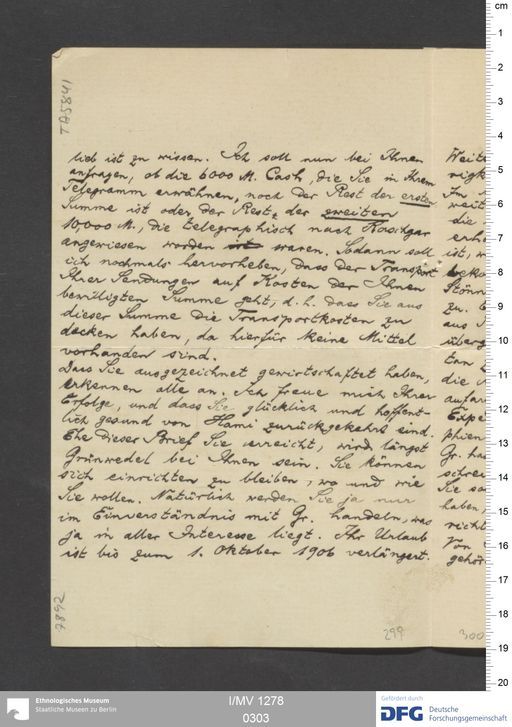 TA5841
lieb ist zu wissen. Ich soll nun bei Ihnen
anfragen, ob die 6000 M. Cash, die Sie in Ihrem
Telegramm erwähnen, noch der Rest der ersten
Summe ist oder der Rest der zweiten
10000 M., die telegraphisch nach Kaschgar
angewiesen worden waren. Sodann soll
ich nochmals hervorheben, dass der Transport
Ihrer Sendungen auf Kosten der Ihnen
bewilligten Summe geht, d. h. dass Sie aus
dieser Summe die Transportkosten zu
decken haben, da hierfür keine Mittel
vorhanden sind.
Dass Sie ausgezeichnet gewirtschaftet haben,
erkennen alle an. Ich freue mich Ihrer
Erfolge, und dass Sie glücklich und hoffent-
lich gesund von Hami zurückgekehrt sind.
Ehe dieser Brief Sie erreicht, wird längst
Grünwedel bei Ihnen sein. Sie können
sich einrichten zu bleiben, wo und wie
Sie wollen. Natürlich werden Sie ja nur
im Einverständnis mit Gr. handeln, was
ja in aller Interesse liegt. Ihr Urlaub
ist bis zum 1. Oktober 1906 verlängert.
7892
299
300
Ethnologisches Museum
Staatliche Museen zu Berlin
I/MV 1278
0303
Gefördert durch
DFG Deutsche
Forschungsgemeinschaft
cm
1
2
3
4
5
6
7
8
9
10
11
12
13
14
15
16
17
18
19
20